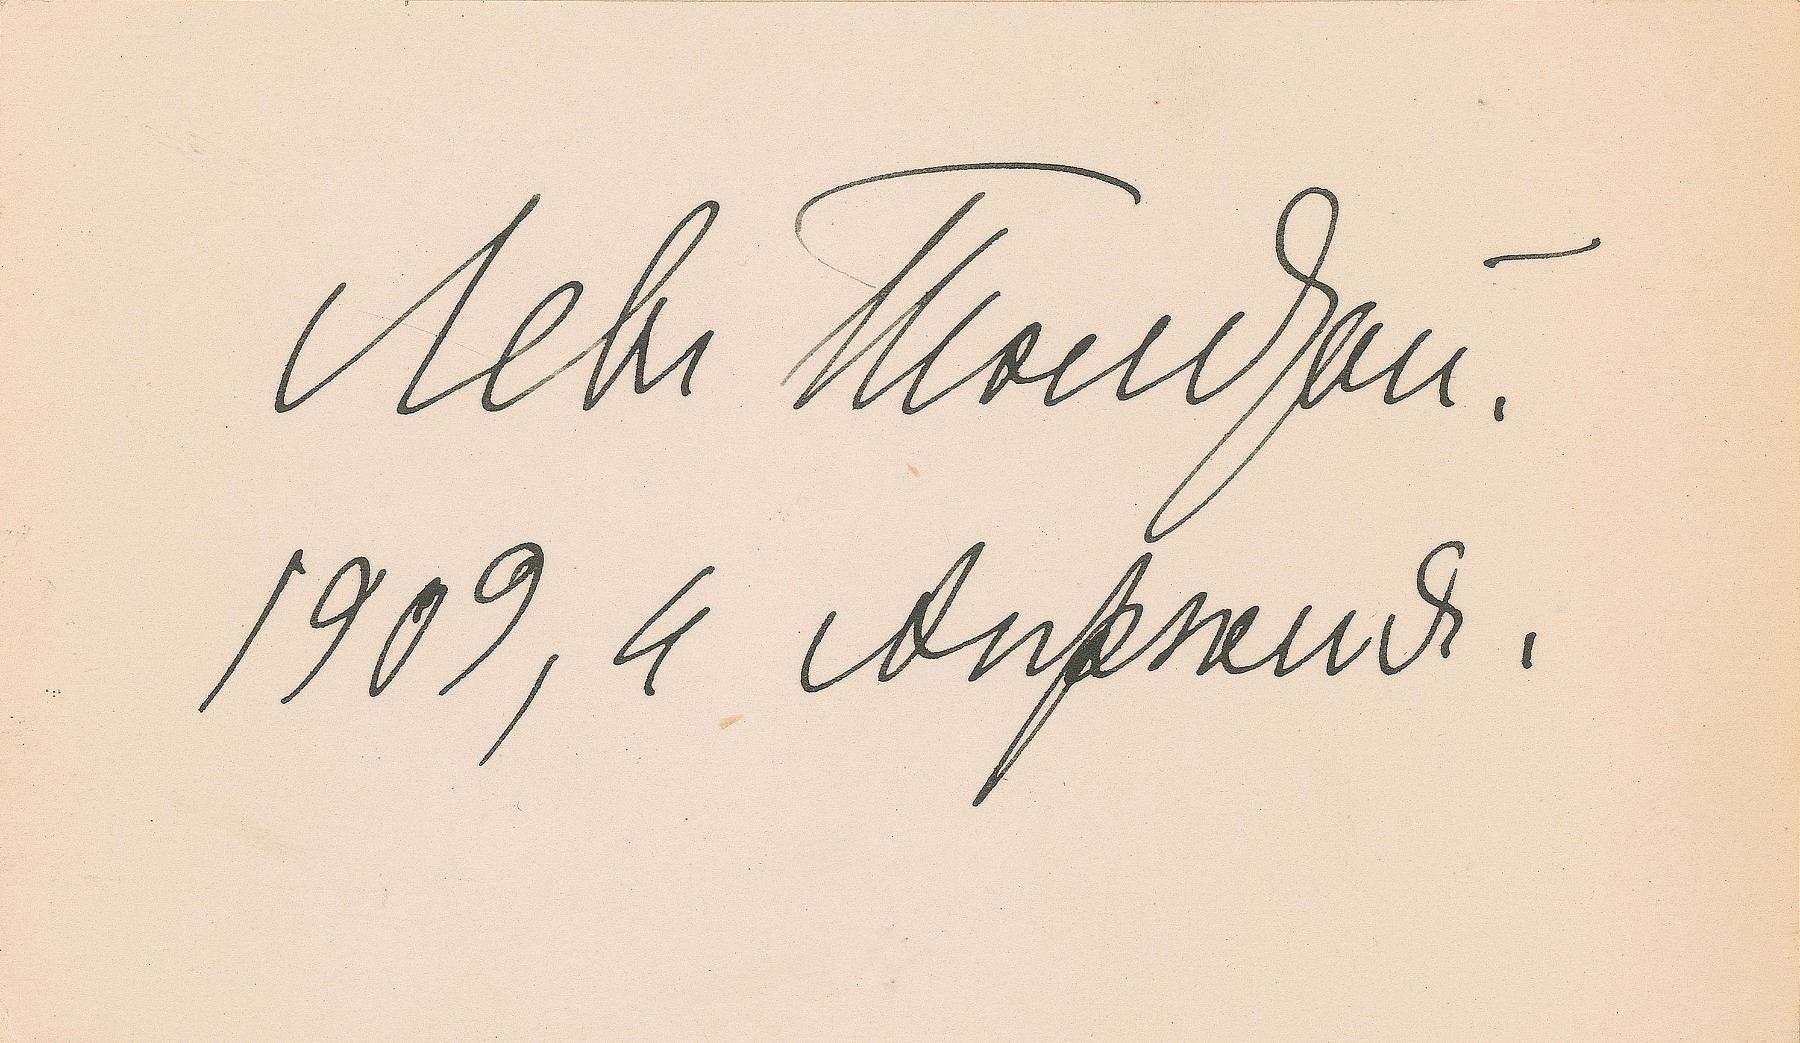 Левъ Толстой.
1909, 4 Апрѣля.